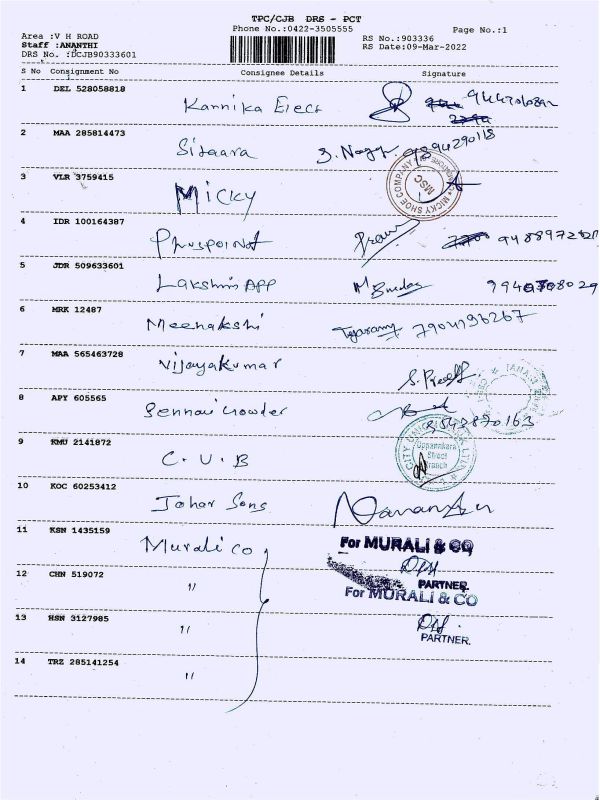 TPC/CJB DRS - PCT
Phone No.:0422-3505555
Page No.:1
Area :V H ROAD
RS No.:903336
Staff :ANANTHI
RS Date:09-Mar-2022
DRS No. :DCJB90333601
S No Consignment No Consignee Details Signature
1 DEL 528058818 Kannika Elecs
2 MAA 285814473 Sitaara 9894290118
3 VLR 3759415 MICKY
MICKY SHOE COMPANY
MSC
4 IDR 100164387
5 JDR 509633601 Lakshmi APP
6 MRK 12487 Meenakshi 7904196267
7 MAA 565463728 Vijayakumar
8 APY 605565 Sennai Chowder
9 KMU 2141872 C.U.B
CITY UNION BANK LTD.
Oppanakara
Street
Branch
10 KOC 60253412 Johar Sons
11 KSN 1435159 Murali Co
For MURALI & CO
PARTNER.
12 CHN 519072 "
For MURALI & CO
13 HSN 3127985 "
PARTNER.
14 TRZ 285141254 "